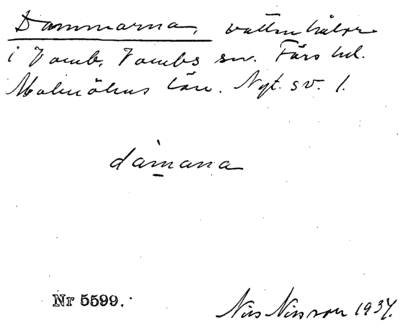 Dammarna, vattenhålor
i Vomb, Vombs sn. Färs hd.
Malmöhus län. Nyt. sv. 1.
dàmana
Nr 5599.
Nils Nilsson 1934.